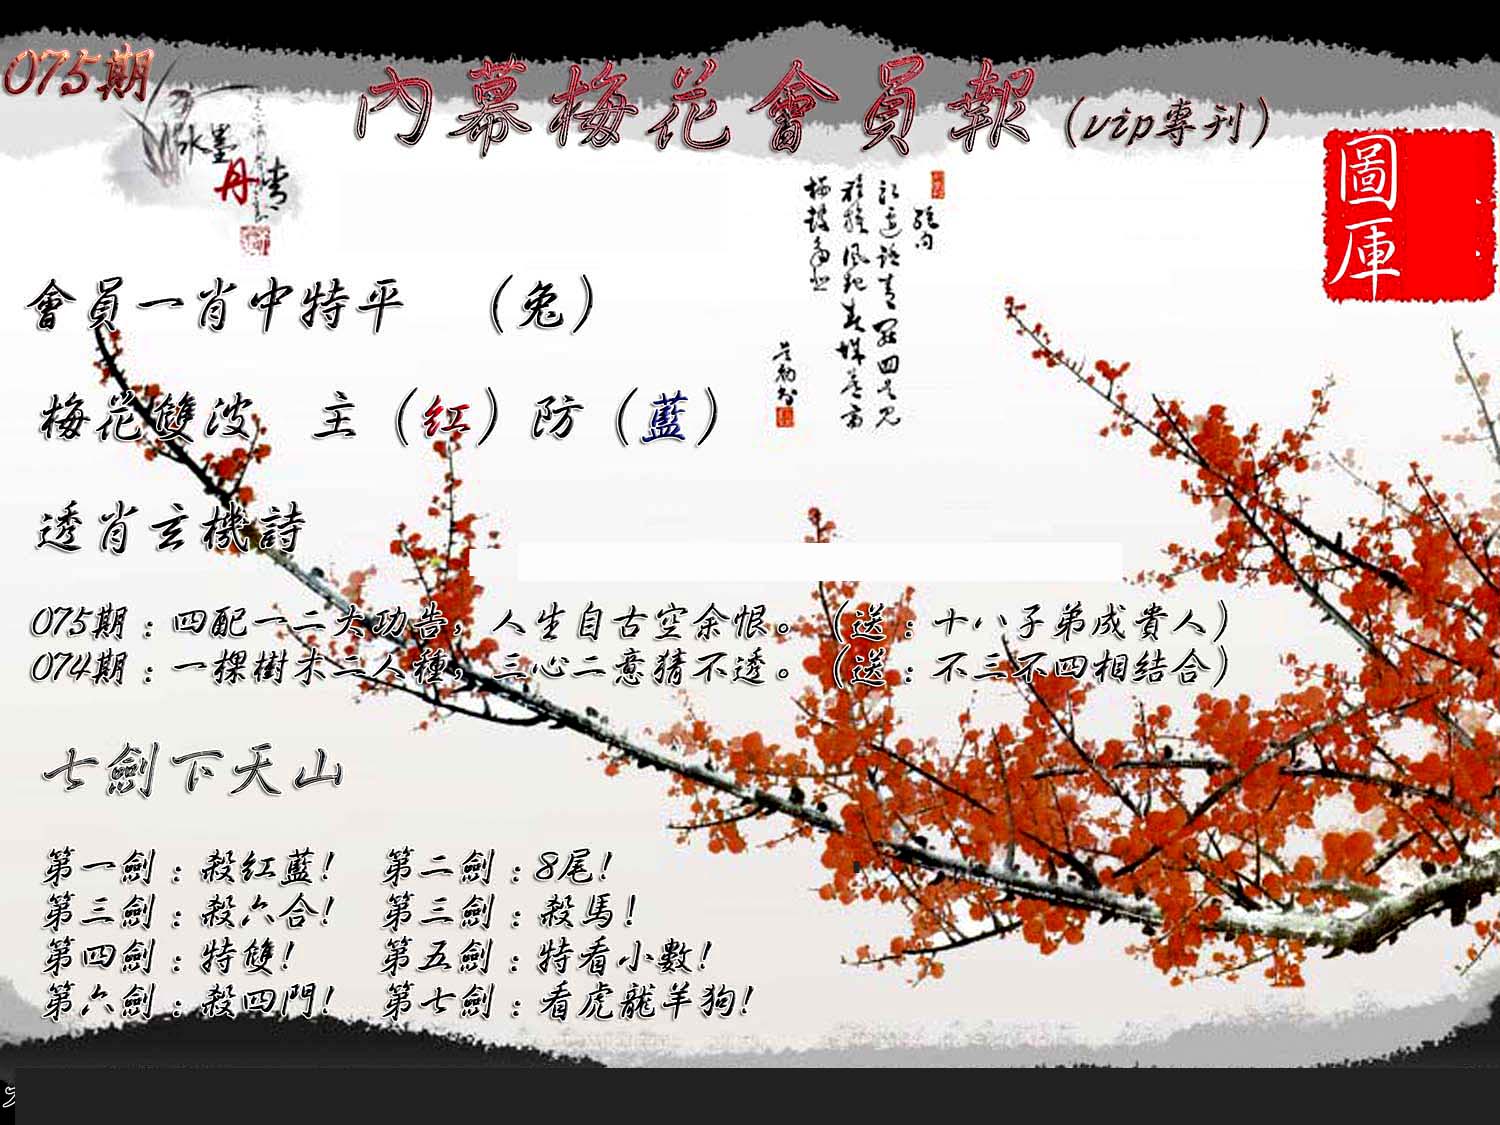 075期
內幕梅花會員報(vip專刊)
水墨
丹青
圖庫
會員一肖中特平 (兔)
梅花雙波 主(紅)防(藍)
透肖玄機詩
075期:四配一二大功告,人生自古空余恨。(送:十八子弟成貴人)
074期:一棵樹木二人種,三心二意猜不透。(送:不三不四相结合)
七劍下天山
第一劍:殺紅藍! 第二劍:8尾!
第三劍:殺六合! 第三劍:殺馬!
第四劍:特雙! 第五劍:特看小數!
第六劍:殺四門! 第七劍:看虎龍羊狗!